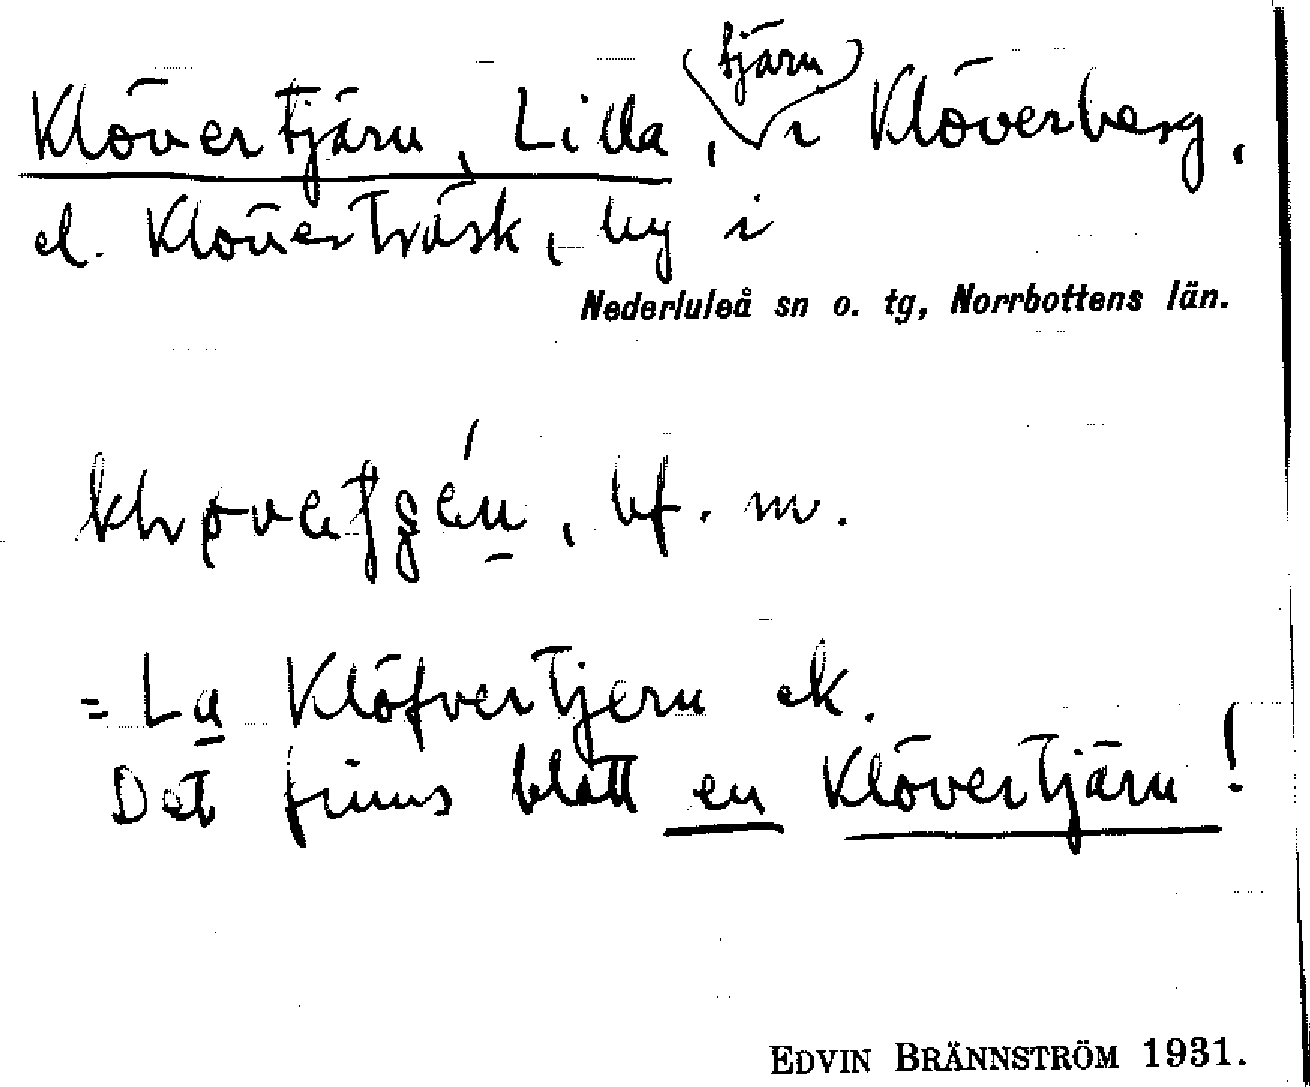 Klövertjärn, Lilla, tjärn i Klöverberg,
el. Klöverträsk, by i
Nederluleå sn o. tg, Norrbottens län.
bf. m.
= La Klöfvertjern ek.
Det finns blott en Klövertjärn!
EDVIN BRÄNNSTRÖM 1931.